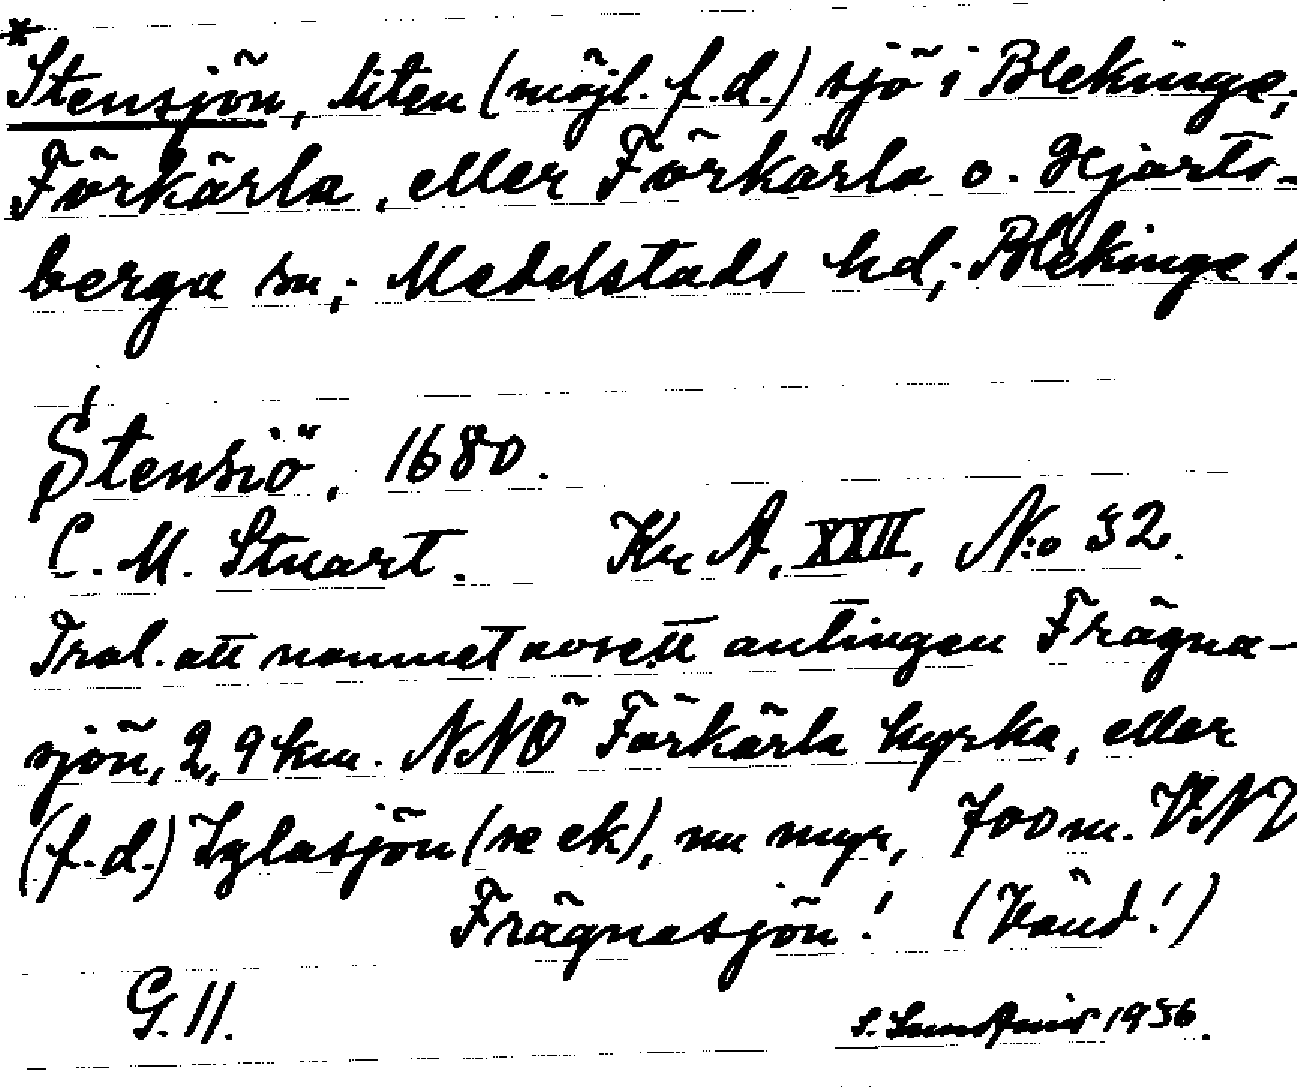 *Stensjön, liten (möjl. f.d.) sjö i Blekinge,
Förkärla, eller Förkärla o. Hjorts-
berga sn; Medelstads hd; Blekinge l.
Stensiö, 1680.
C. M. Stuart. Kr A, XXII, N:o 52.
Trol. att namnet avsett antingen Frägna-
sjön, 2,9 km. NNÖ Förkärla kyrka, eller
(f.d.) Iglasjön (se ek), nu myr, 700 m. VNV
Frägnasjön! (Vänd!)
G. 11.
1956.